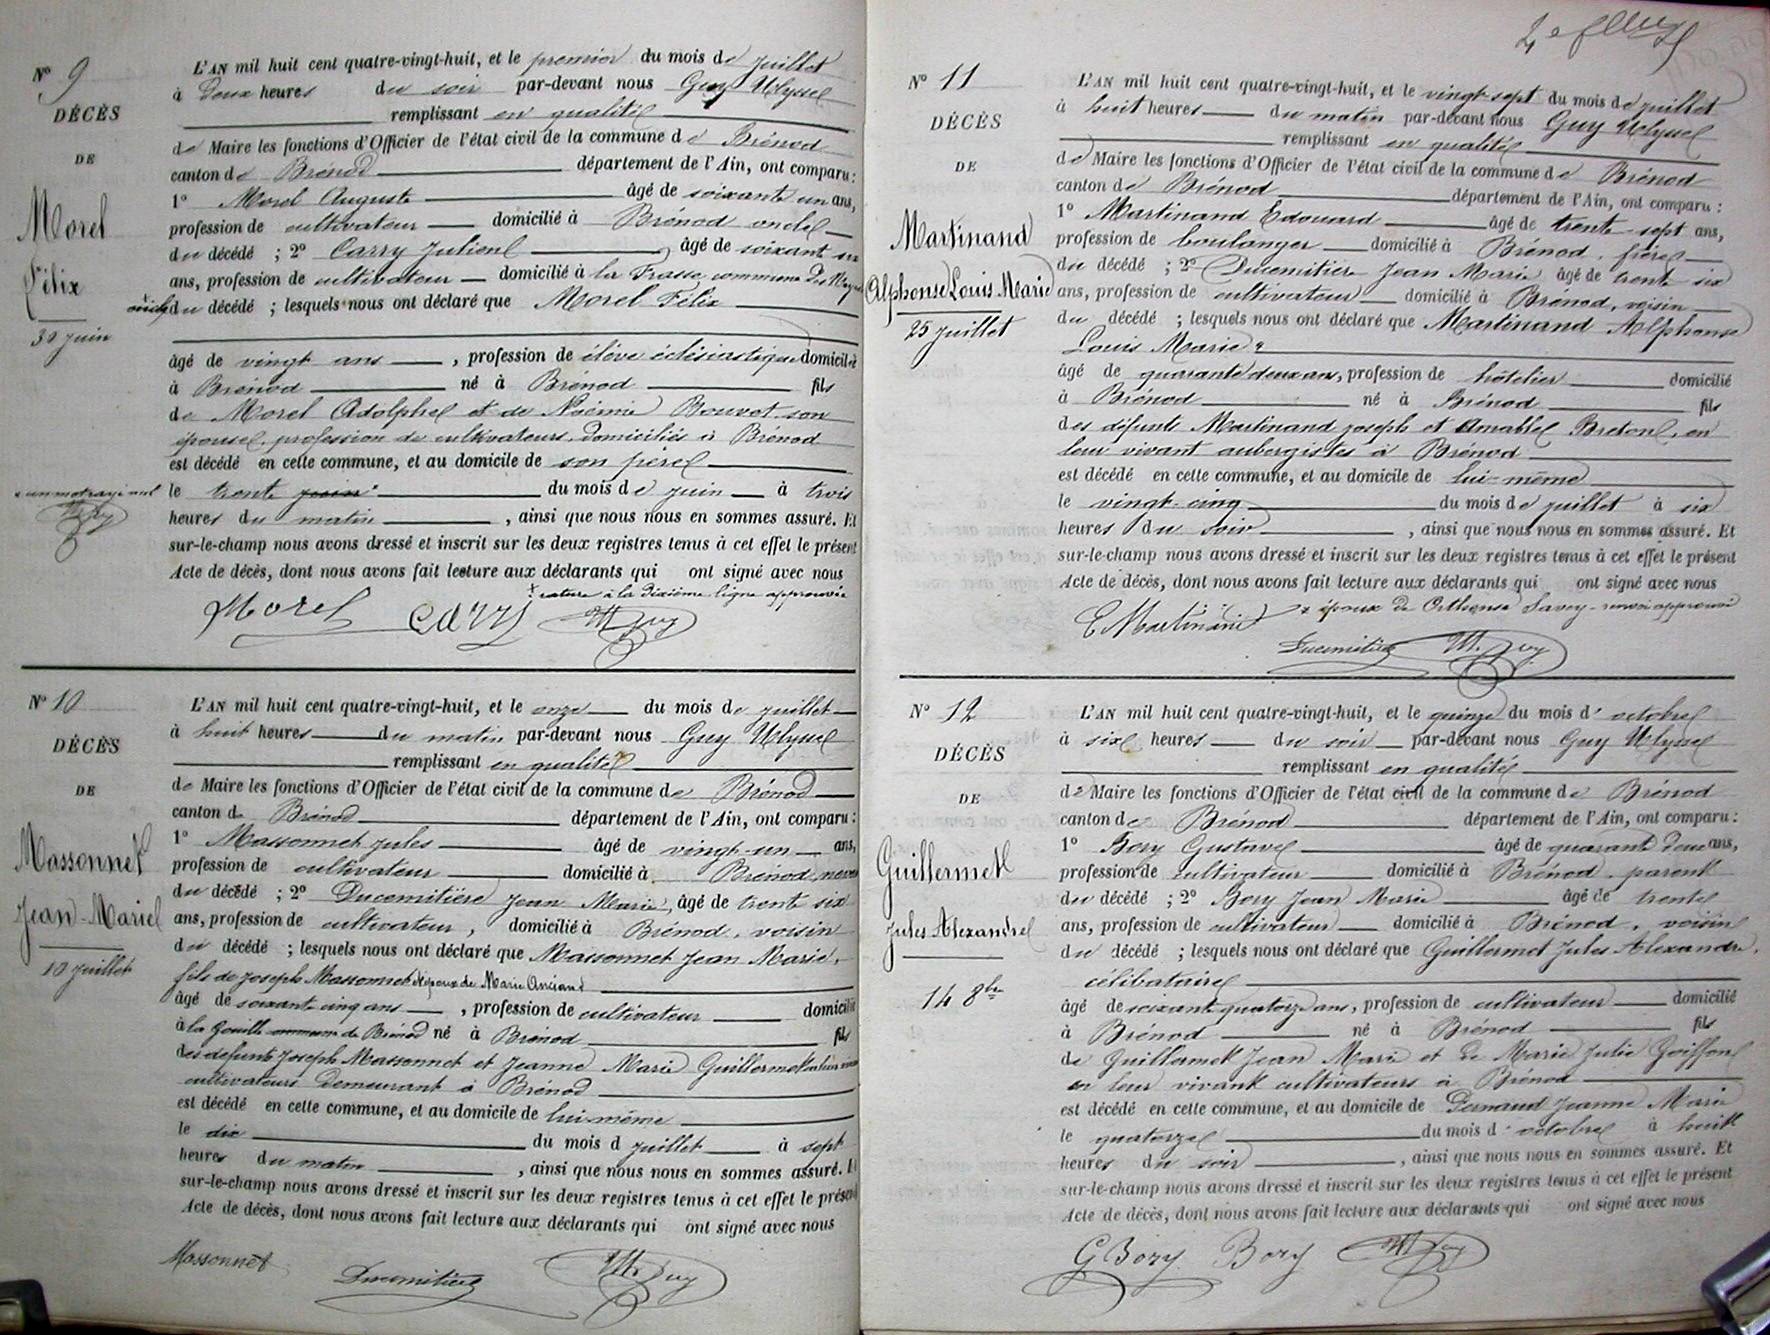 N° 9
DÉCÈS
DE
Morel
Félix
30 juin
L'AN mil huit cent quatre-vingt-huit, et le premier du mois de juillet
à deux heures du soir par-devant nous Guy Ulysse
remplissant en qualité
de Maire les fonctions d'Officier de l'état civil de la commune de Brénod
canton de Brénod département de l'Ain, ont comparu :
1° Morel Auguste âgé de soixante un ans,
profession de cultivateur domicilié à Brénod oncle
du décédé ; 2° Carry Julien âgé de soixante un
ans, profession de cultivateur domicilié à la commune des
oncle du décédé ; lesquels nous ont déclaré que Morel Félix
âgé de vingt ans , profession de élève éclésiastique domicilié
à Brénod né à Brénod fils
de Morel Adolphe et de Noémie Bouvet son
épouse, profession de cultivateurs domiciliés à Brénod
est décédé en cette commune, et au domicile de son père
× un mot rayé nul
le trente juin × du mois de juin à trois
heures du matin , ainsi que nous nous en sommes assuré. Et
sur-le-champ nous avons dressé et inscrit sur les deux registres tenus à cet effet le présent
Acte de décès, dont nous avons fait lecture aux déclarants qui ont signé avec nous
× rature à la dixième ligne approuvée
Morel Carry U. Guy
N° 10
DÉCÈS
DE
Massonnet
Jean-Marie
10 juillet
L'AN mil huit cent quatre-vingt-huit, et le onze du mois de juillet
à huit heures du matin par-devant nous Guy Ulysse
remplissant en qualité
de Maire les fonctions d'Officier de l'état civil de la commune de Brénod
canton de Brénod département de l'Ain, ont comparu :
1° Massonnet Jules âgé de vingt-un ans,
profession de cultivateur domicilié à Brénod, neveu
du décédé ; 2° Ducemitière Jean Marie, âgé de trente six
ans, profession de cultivateur, domicilié à Brénod, voisin
du décédé ; lesquels nous ont déclaré que Massonnet Jean Marie,
fils de Joseph Massonnet époux de Marie Anciand
âgé de soixante cinq ans , profession de cultivateur domicilié
à la Gouille commune de Brénod né à Brénod fils
des défunts Joseph Massonnet et Jeanne Marie Guillermet
cultivateurs demeurant à Brénod
est décédé en cette commune, et au domicile de lui-même
le dix du mois d juillet à sept
heures du matin , ainsi que nous nous en sommes assuré. Et
sur-le-champ nous avons dressé et inscrit sur les deux registres tenus à cet effet le présent
Acte de décès, dont nous avons fait lecture aux déclarants qui ont signé avec nous
Massonnet Ducemitière U. Guy
2e
N° 11
DÉCÈS
DE
Martinand
Alphonse Louis Marie
25 juillet
L'AN mil huit cent quatre-vingt-huit, et le vingt-sept du mois de juillet
à huit heures du matin par-devant nous Guy Ulysse
remplissant en qualité
de Maire les fonctions d'Officier de l'état civil de la commune de Brénod
canton de Brénod département de l'Ain, ont comparu :
1° Martinand Edouard âgé de trente sept ans,
profession de boulanger domicilié à Brénod, frère
du décédé ; 2° Ducemitière Jean Marie âgé de trente six
ans, profession de cultivateur domicilié à Brénod, voisin
du décédé ; lesquels nous ont déclaré que Martinand Alphonse
Louis Marie ×
âgé de quarante deux ans, profession de hôtelier domicilié
à Brénod né à Brénod fils
des défunts Martinand Joseph et Amable Breton, en
leur vivant aubergistes à Brénod
est décédé en cette commune, et au domicile de lui-même
le vingt-cinq du mois de juillet à six
heures du soir , ainsi que nous nous en sommes assuré. Et
sur-le-champ nous avons dressé et inscrit sur les deux registres tenus à cet effet le présent
Acte de décès, dont nous avons fait lecture aux déclarants qui ont signé avec nous
× époux de Orthense Savey - renvoi approuvé
E Martinand Ducemitière U. Guy
N° 12
DÉCÈS
DE
Guillermet
Jules Alexandre
14 8bre
L'AN mil huit cent quatre-vingt-huit, et le quinze du mois d' octobre
à six heures du soir par-devant nous Guy Ulysse
remplissant en qualité
de Maire les fonctions d'Officier de l'état civil de la commune de Brénod
canton de Brénod département de l'Ain, ont comparu :
1° Bory Gustave âgé de quarante deux ans,
profession de cultivateur domicilié à Brénod, parent
du décédé ; 2° Bory Jean Marie âgé de trente
ans, profession de cultivateur domicilié à Brénod, voisin
du décédé ; lesquels nous ont déclaré que Guillermet Jules Alexandre,
célibataire
âgé de soixante quatorze ans, profession de cultivateur domicilié
à Brénod né à Brénod fils
de Guillermet Jean Marie et de Marie Julie Goiffon
en leur vivant cultivateurs à Brénod
est décédé en cette commune, et au domicile de Jeanne Marie
le quatorze du mois d' octobre à huit
heures du soir , ainsi que nous nous en sommes assuré. Et
sur-le-champ nous avons dressé et inscrit sur les deux registres tenus à cet effet le présent
Acte de décès, dont nous avons fait lecture aux déclarants qui ont signé avec nous
G Bory Bory U. Guy